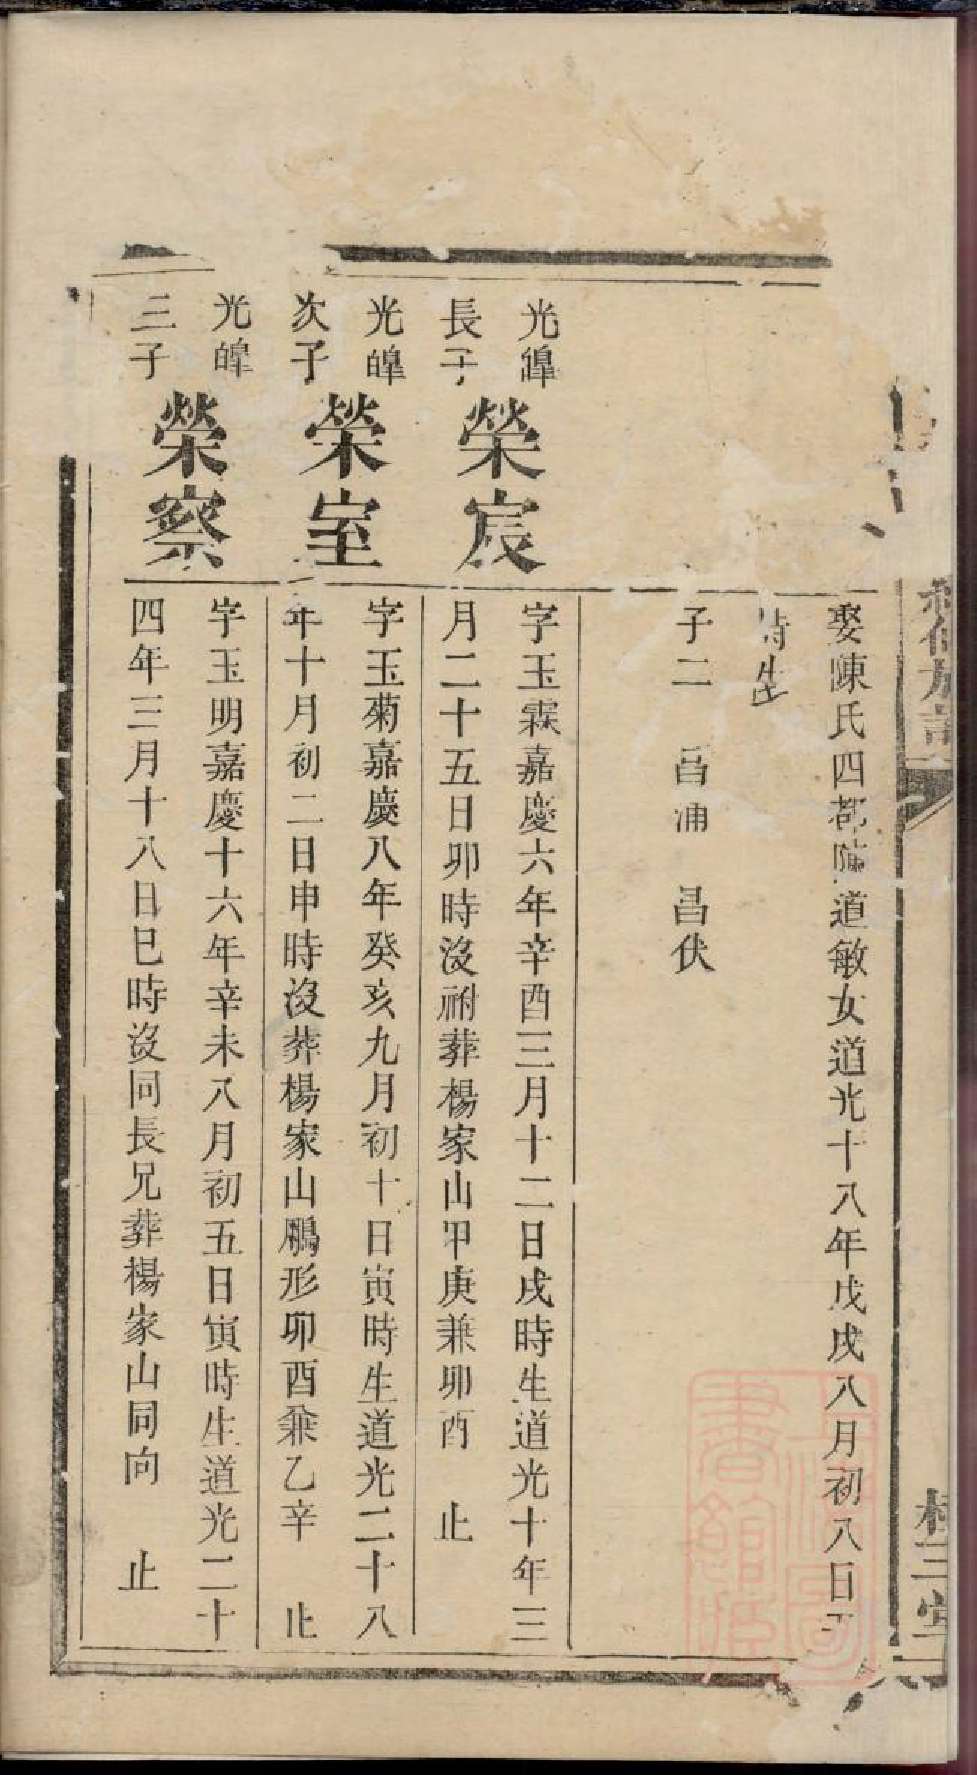 娶陳氏四都陳道敏女道光十八年戊戌八月初八日
時生
子二　昌浦　昌伏
光皥
長子
榮宸
字玉霖嘉慶六年辛酉三月十二日戌時生道光十年三
月二十五日卯時沒祔葬楊家山甲庚兼卯酉　止
光皥
次子
榮室
字玉菊嘉慶八年癸亥九月初十日寅時生道光二十八
年十月初二日申時沒葬楊家山鵰形卯酉兼乙辛　止
光皥
三子
榮察
字玉明嘉慶十六年辛未八月初五日寅時生道光二十
四年三月十八日巳時沒同長兄葬楊家山同向　止